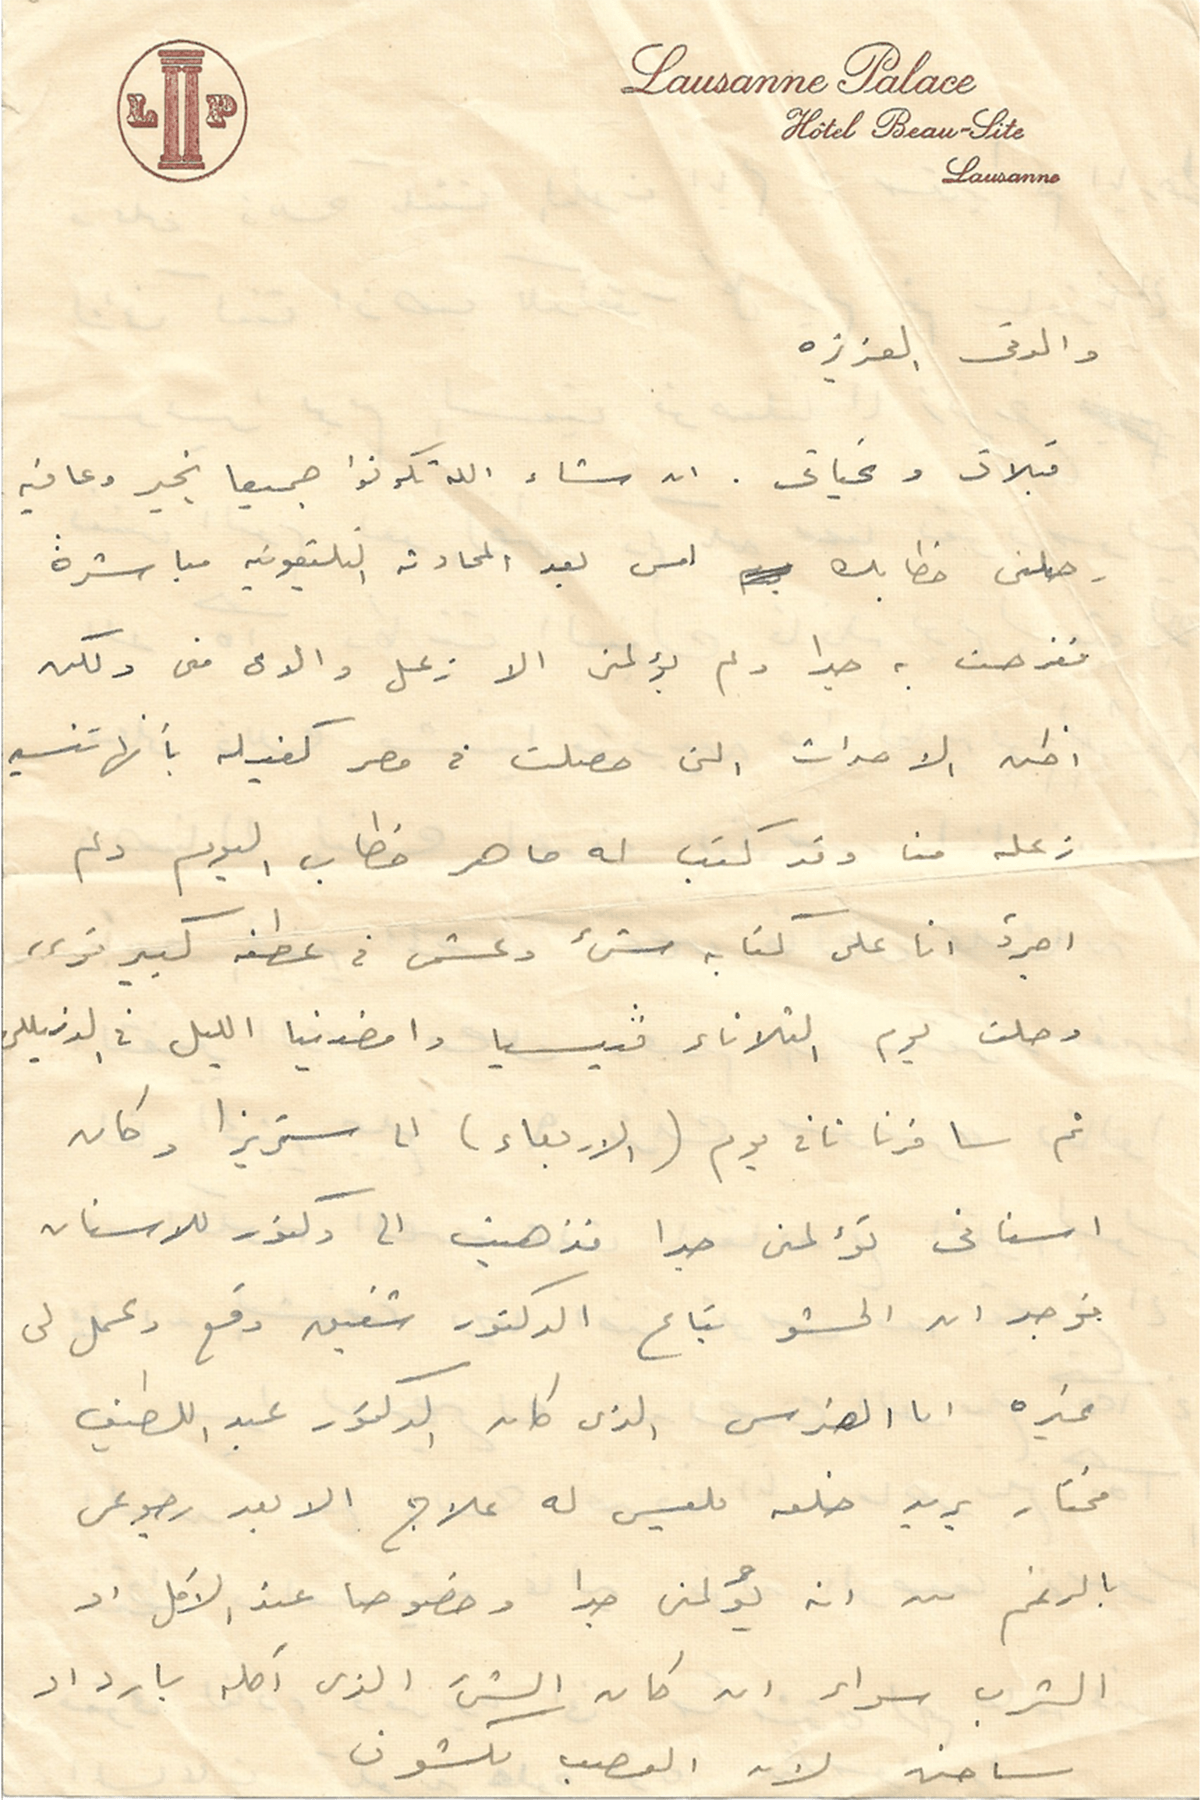 L P
Lausanne Palace
Hôtel Beau-Site
Lausanne
والدتى العزيزه
قبلاتى وتحياتى . ان شاء الله تكونوا جميعا بخير وعافيه
وصلنى خطابك امس بعد المحادثه التليفونيه مباشرة
ففرحت به جدا ولم يؤلمنى الا زعل والدى منى ولكن
اظن الاحداث التى حصلت فى مصر كفيله بأنها تنسيه
زعله منا وقد كتب له ماهر خطاب اليوم ولم
اجرؤ انا على كتابه شئ وعشمى فى عطفه كبير قوى
وصلت يوم الثلاثاء ڤنيسيا وامضينا الليل فى الدنيللى
ثم سافرنا ثانى يوم (الاربعاء) الى ستريزا وكان
اسنانى تؤلمنى جدا فذهبت الى دكتور للاسنان
فوجد ان الحشو بتاع الدكتور شفيق وقع وعمل لى
غيره اما الضرس الذى كان الدكتور عبد اللطيف
مختار يريد خلعه فليس له علاج الا بعد رجوعى
بالرغم من انه يؤلمنى جدا وخصوصا عند الأكل او
الشرب سواء ان كان الشئ الذى آكله بارد او
ساخن لان العصب مكشوف